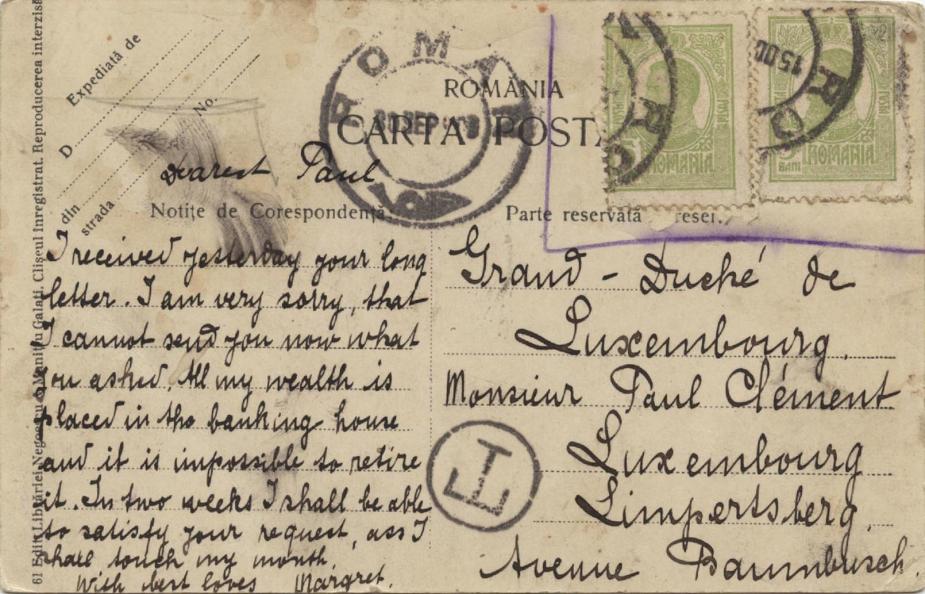 61 Edit. Librăriei Negoescu & Manițiu Galați. Clișeul înregistrat. Reproducerea interzisă
Expediată de
D
No.
din
strada
ROMAN
SEP
ROMÂNIA
CARTA POSTA
15 DEC
ROMANIA
5 BANI
ROMANIA
5 BANI
Dearest Paul
Notițe de Corespondență
Parte reservată resei.
I received yesterday your long
letter. I am very sorry, that
I cannot send you now what
you asked. All my wealth is
placed in the banking house
and it is impossible to retire
it. In two weeks I shall be able
to satisfy your request, ass I
shall touch my month.
With best loves Margret.
Grand-Duché de
Luxembourg.
Monsieur Paul Clément
Luxembourg
Limpertsberg.
Avenue Baumbusch.
T